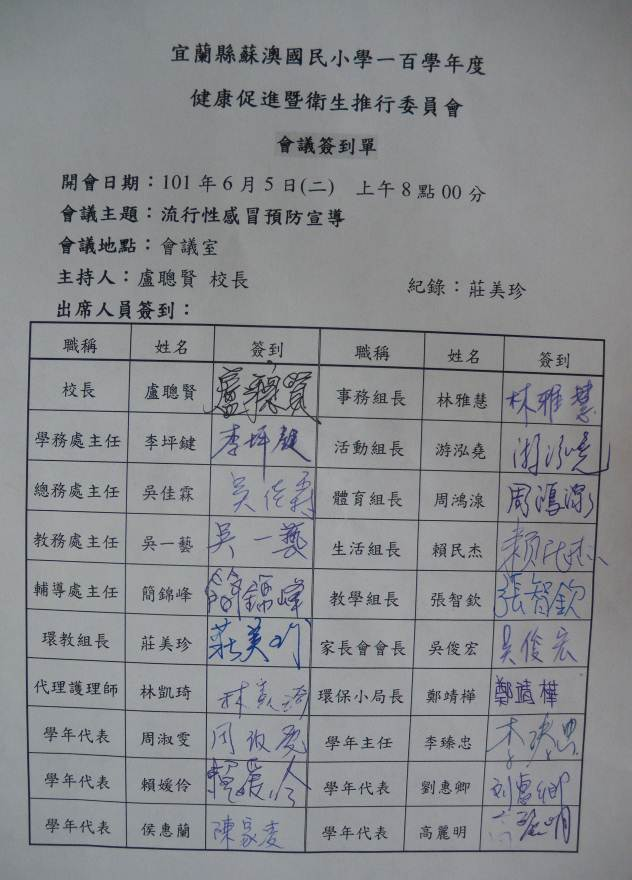 宜蘭縣蘇澳國民小學一百學年度
健康促進暨衛生推行委員會
會議簽到單
開會日期：101 年 6 月 5 日(二) 上午 8 點 00 分
會議主題：流行性感冒預防宣導
會議地點：會議室
主持人：盧聰賢 校長 紀錄：莊美珍
出席人員簽到：
職稱 姓名 簽到 職稱 姓名 簽到
校長 盧聰賢 盧聰賢 事務組長 林雅慧 林雅慧
學務處主任 李坪鍵 李坪鍵 活動組長 游泓堯 游泓堯
總務處主任 吳佳霖 吳佳霖 體育組長 周鴻湶 周鴻湶
教務處主任 吳一藝 吳一藝 生活組長 賴民杰 賴民杰
輔導處主任 簡錦峰 簡錦峰 教學組長 張智欽 張智欽
環教組長 莊美珍 莊美珍 家長會會長 吳俊宏 吳俊宏
代理護理師 林凱琦 林凱琦 環保小局長 鄭靖樺 鄭靖樺
學年代表 周淑雯 周淑雯 學年主任 李臻忠 李臻忠
學年代表 賴媛伶 賴媛伶 學年代表 劉惠卿 刘惠卿
學年代表 侯惠蘭 學年代表 高麗明 高麗明